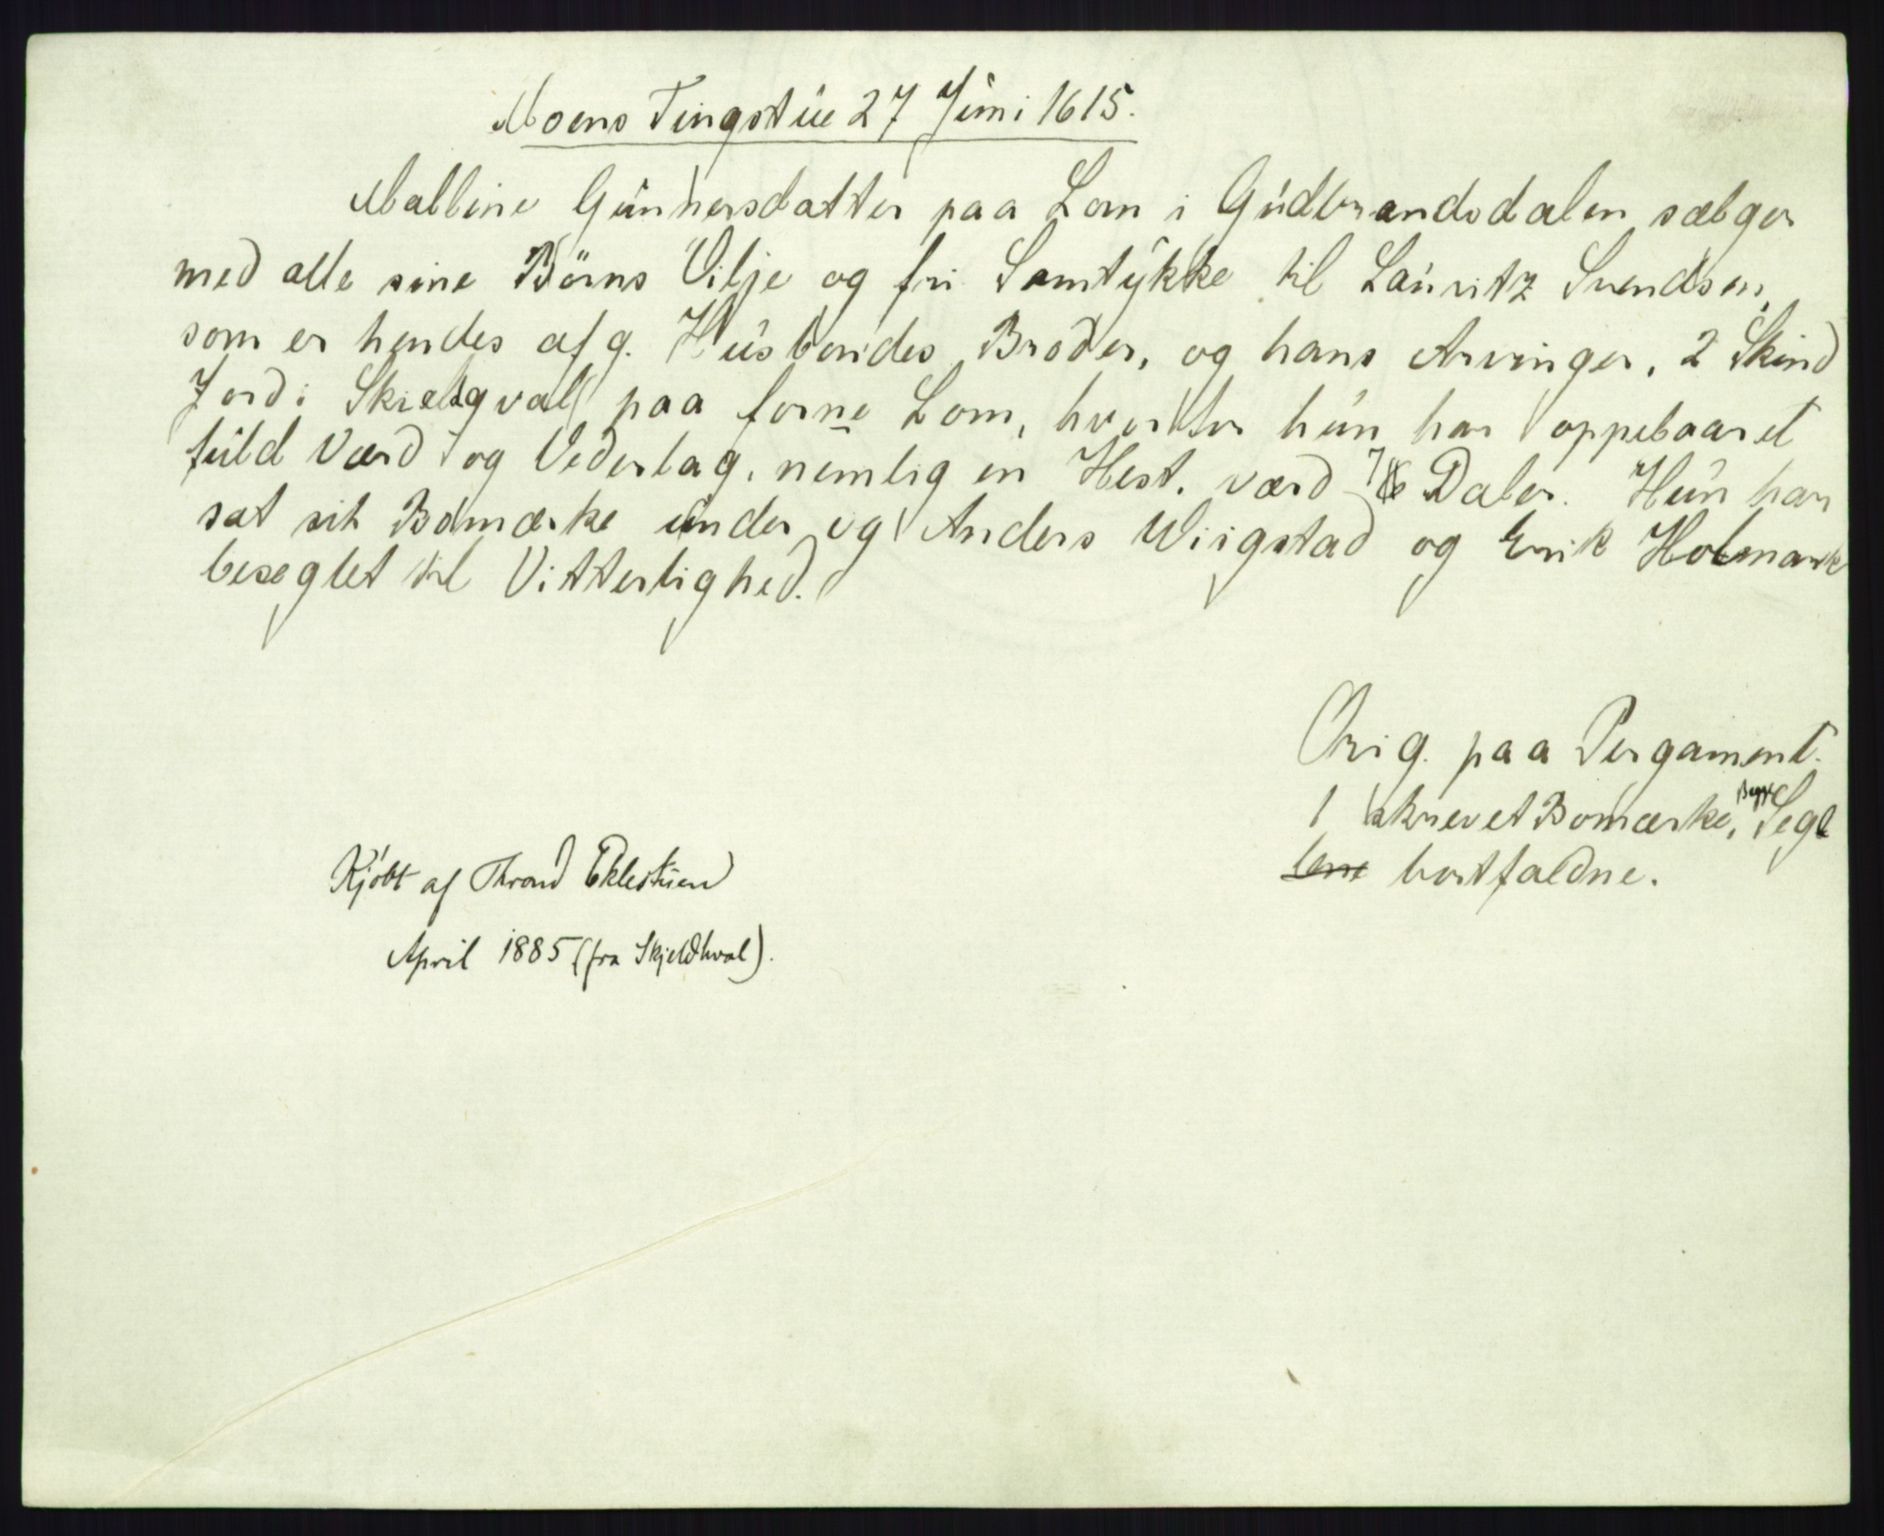 Moens Tingstue 27 Juni 1615.
Malline Gunnersdatter paa Lom i Gudbrandsdalen sælger
med alle sine Börns Vilje og fri Samtykke til Lauritz Svendsen,
som er hendes afg. Husbondes Broder, og hans Arvinger, 2 Skind
Jord i Skielqval paa forne Lom, hvorfor hun har oppebaaret
fuld Værd og Vederlag, nemlig en Hest, værd 7 Daler. Hun har
sat sit Bomærke under og Anders Wiigstad og Erik Holmark
beseglet til Vitterlighed.
Orig. paa Pergament.
1 skrevet Bomærke, Begge Segl
lene bortfaldne.
Kjöbt af Thrond Eklestuen
April 1885 (fra Skjeldhval).